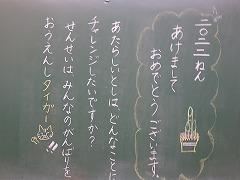 二〇二二ねん
あけまして
おめでとうございます。
あたらしいとしは、どんなことに
チャレンジしたいですか？
せんせいは、みんなのがんばりを
おうえんしタイガー!!